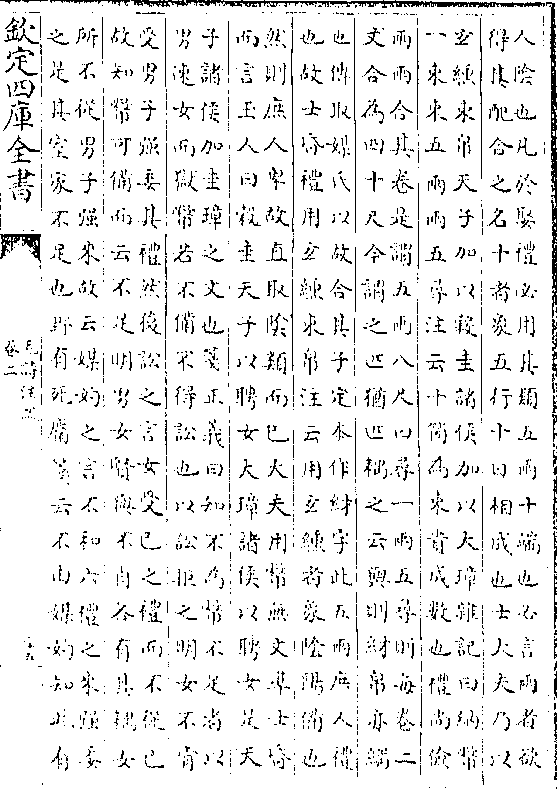 人陰也凡於娶禮必用其類五兩十端也必言兩者欲
得其配合之名十者象五行十日相成也士大夫乃以
玄纁束帛天子加以穀圭諸侯加以大璋雜記曰納幣
一束束五兩兩五尋注云十箇為束貴成數也禮尚儉
兩兩合其卷是謂五兩八尺曰尋一兩五尋則每卷二
丈合為四十尺今謂之匹猶匹耦之云與則紂帛亦緇
也傳取媒氏以故合其子定本作紂字此五兩庶人禮
也故士昏禮用玄纁束帛注云用玄纁者象陰陽備也
然則庶人卑故直取陰類而已大夫用幣無文準士昏
而言玉人曰穀圭天子以聘女大璋諸侯以聘女是天
子諸侯加圭璋之文也箋正義曰知不為幣不足者以
男速女而獄幣若不備不得訟也以訟拒之明女不肯
受男子强委其禮然後訟之言女受已之禮而不從已
故知幣可備而云不足明男女賢與不肖各有其耦女
所不從男子强來故云媒妁之言不和六禮之來强委
之是其室家不足也野有死麕箋云不由媒妁知此有
欽定四庫全書
毛詩注疏
卷二